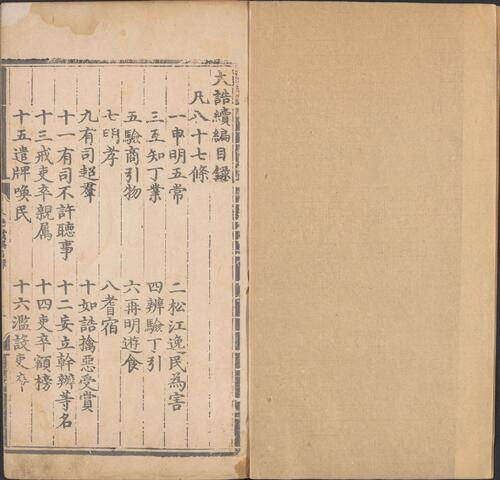 大誥續編目錄
凡八十七條
一申明五常 二松江逸民為害
三互知丁業 四辨驗丁引
五驗商引物 六再明遊食
七明孝 八耆宿
九有司超羣 十如誥擒惡受賞
十一有司不許聽事 十二妄立幹辦等名
十三戒吏卒親屬 十四吏卒額榜
十五遣牌喚民 十六濫設吏卒